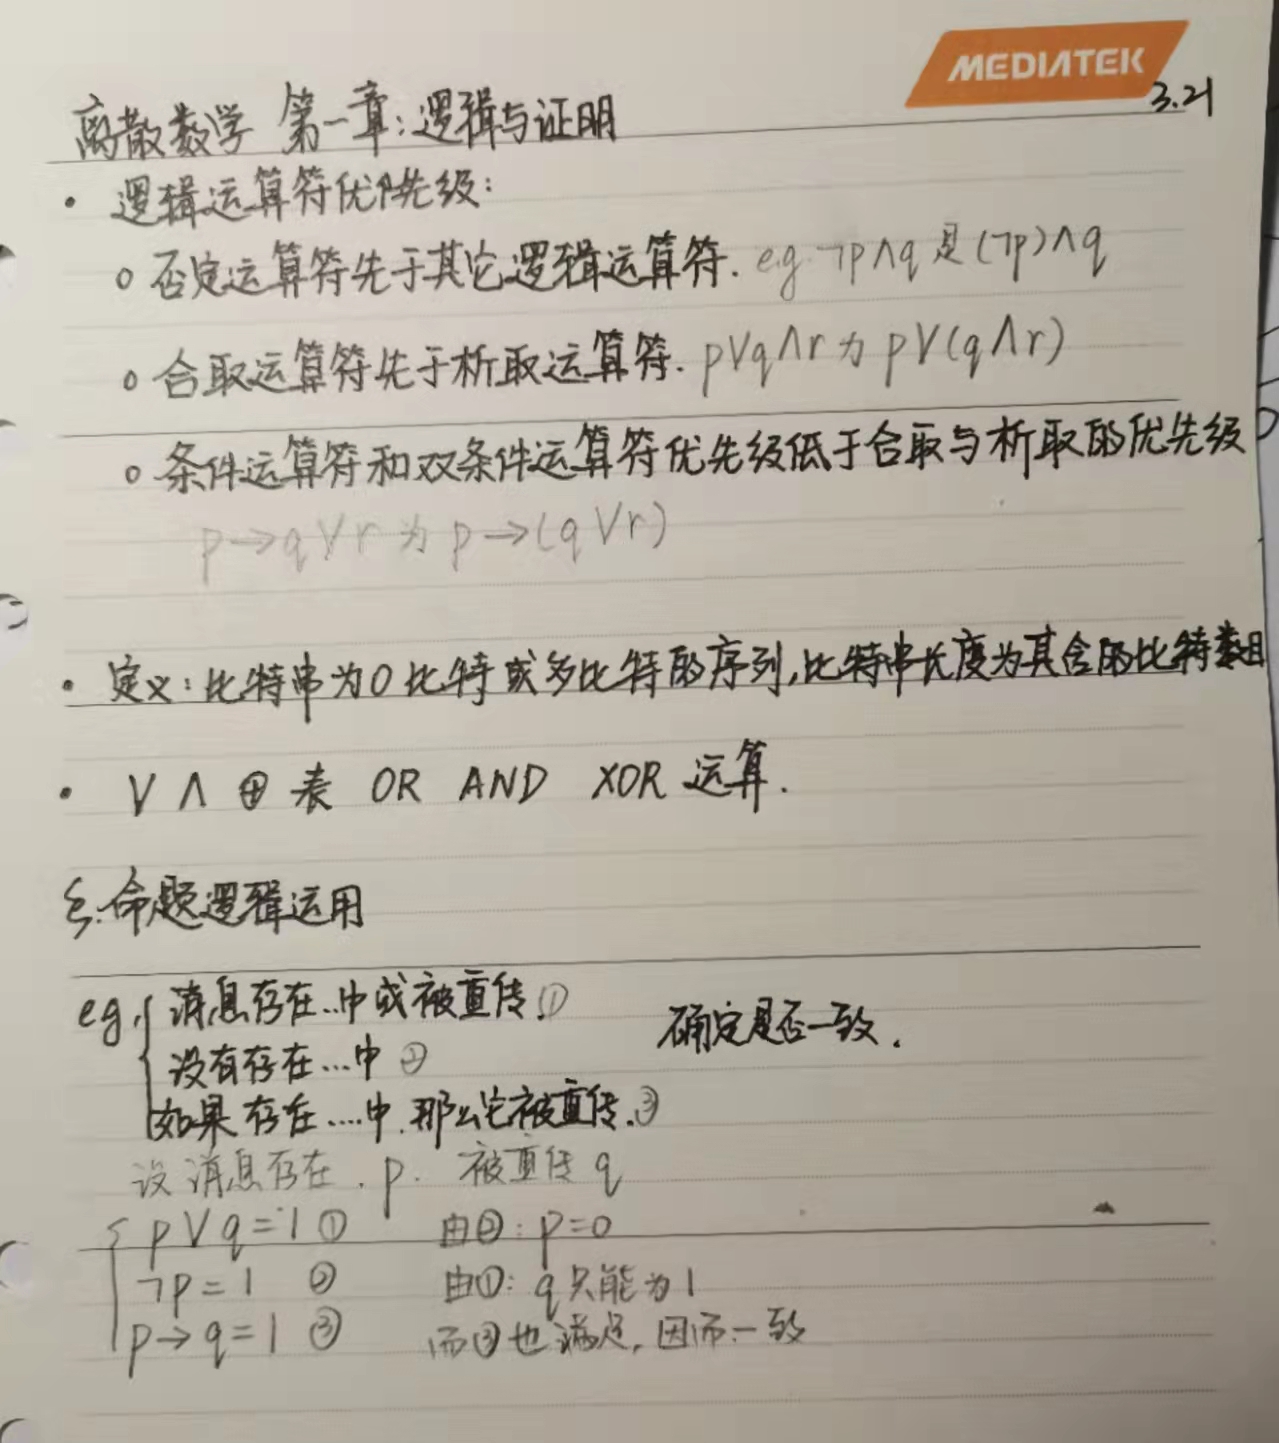 MEDIATEK
3.21
离散数学 第一章：逻辑与证明
· 逻辑运算符优先级：
○ 否定运算符先于其它逻辑运算符. e.g. ¬p∧q 是 (¬p)∧q
○ 合取运算符先于析取运算符. p∨q∧r 为 p∨(q∧r)
○ 条件运算符和双条件运算符优先级低于合取与析取的优先级
p→q∨r 为 p→(q∨r)
· 定义：比特串为0比特或多比特的序列,比特串长度为其含的比特数目
· ∨ ∧ ⊕ 表 OR AND XOR 运算.
§.命题逻辑运用
eg. { 消息存在…中或被重传.① 确定是否一致.
没有存在…中 ②
如果存在….中.那么它被重传.③
设 消息存在. p. 被重传 q
{ p∨q=1 ① 由②: p=0
¬p=1 ② 由①: q只能为1
p→q=1 ③ 而③也满足, 因而一致